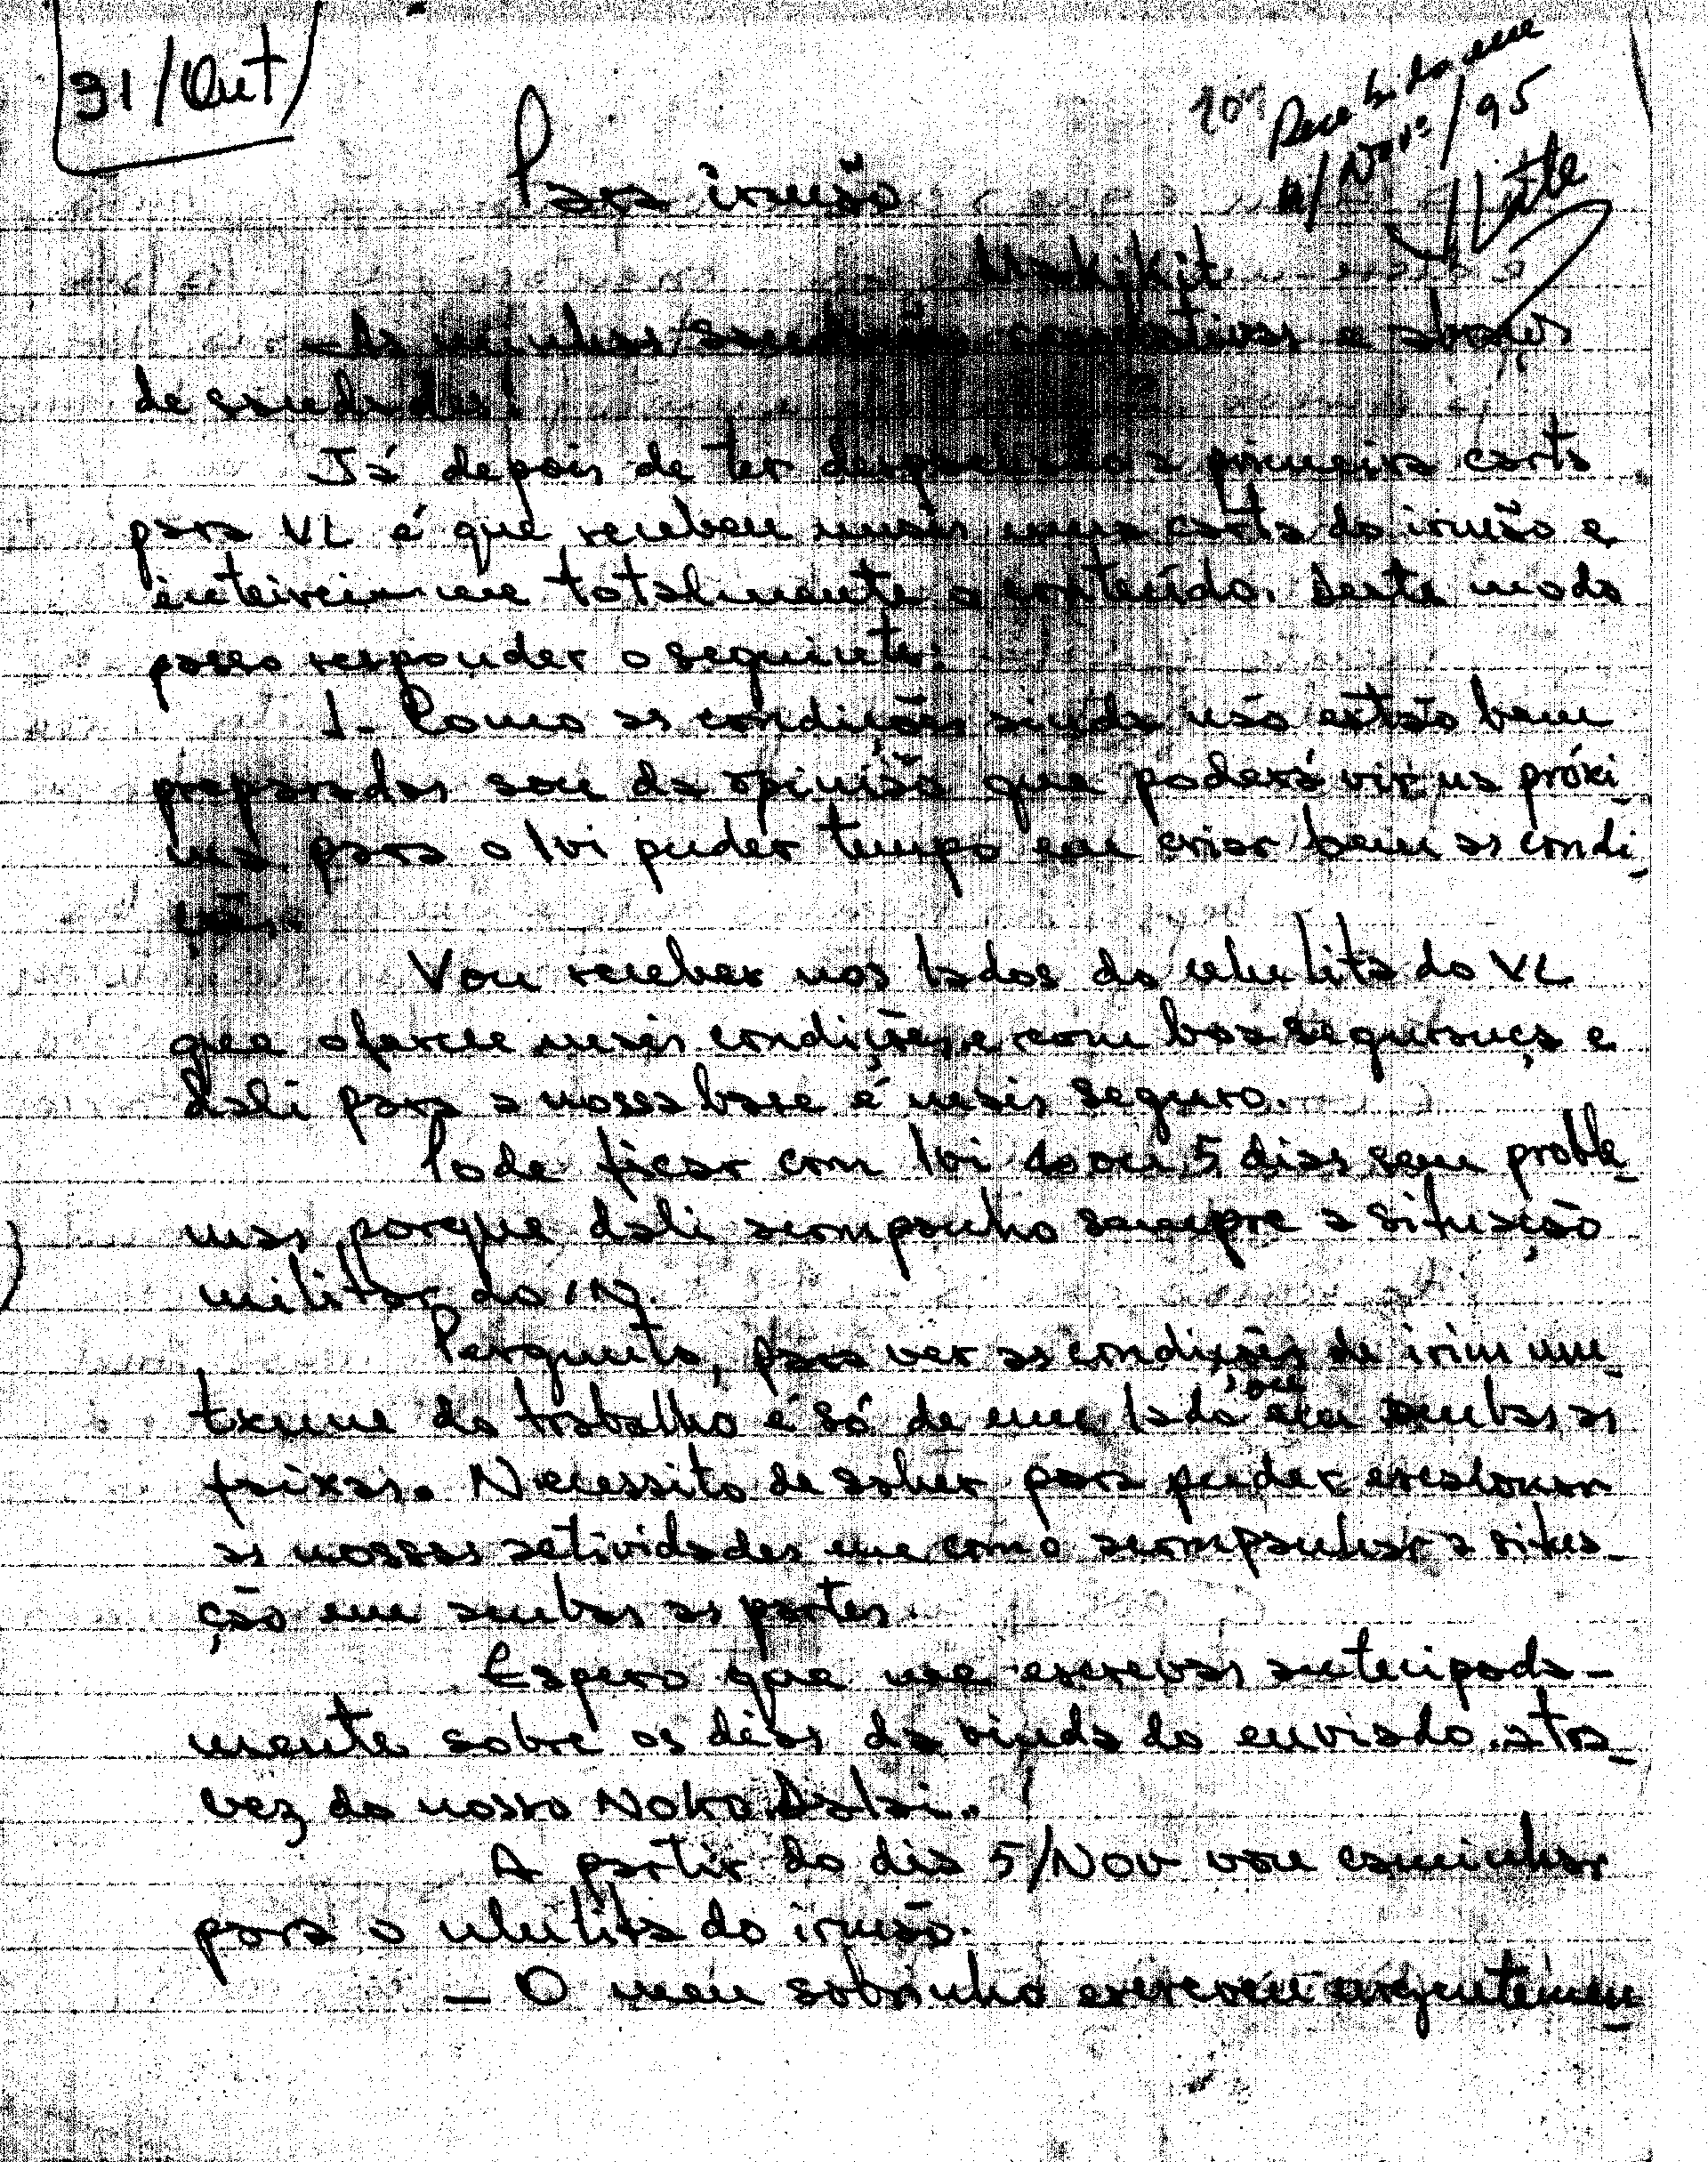 31/Out/
Recebido em
/Nov.º/95
Para irmão
Makikit
- As minhas saudações combativas e abraços
de saudades!
Já depois de ter despachado a primeira carta
para VL é que receben mais uma carta do irmão e
inteirei-me totalmente o conteúdo. Deste modo
passo responder o seguinte:
1- Como as condições ainda não estão bem
preparadas sou da opinião que poderá vir na próxi
ma para o Ivi puder tempo em criar bem as condi
ções.
Vou receber nos lados do ululita do VL
que oferece mais condições e com boa segurança e
dali para a nossa base é mais seguro.
Pode ficar com Ivi 4 ou 5 dias sem proble
mas, porque dali acompanho sempre a situação
militar do IN.
Pergunto, para ver as condições de irim um
txume do trabalho é só de um lado, ou em ambas as
faixas. Necessito de saber para puder escalonar
as nossas actividades em como acompanhar a situa
ção em ambas as partes.
Espero que me escrevas antecipada-
mente sobre os dias da vinda do enviado atra
vez do nosso Noko Dalai.
A partir do dia 5/Nov vou caminhar
para o ululita do irmão.
- O meu sobrinho escreveu urgentemen